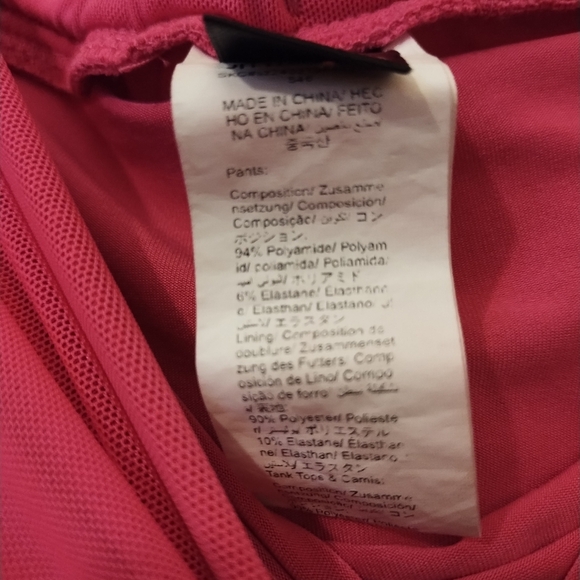 MADE IN CHINA/ HEC
HO EN CHINA/ FEITO
NA CHINA/
Pants:
Composition/ Zusamme
nsetzung/ Composición/
Composição/ コン
ポジション:
94% Polyamide/ Polyam
id/ poliamida/ Poliamida/
ポリアミド
6% Elastane/ Elasthann
e/ Elasthan/ Elastano/
エラスタン
Lining: Composition de
doublure/ Zusammenset
zung des Futters/ Comp
osición de Lino/ Compo
sição de forro/
90% Polyester/ Polieste
r/ ポリエステル
10% Elastane/ Elasthan
ne/ Elasthan/ Elastano
エラスタン
Tank Tops & Camis:
Composition/ Zusamme